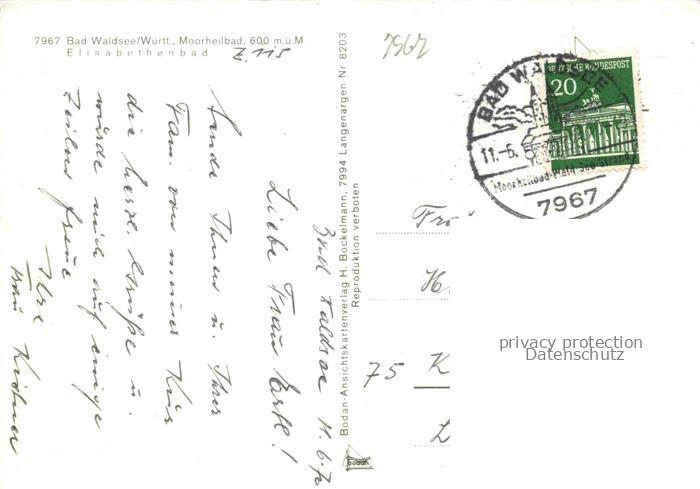 7967 Bad Waldsee/Württ., Moorheilbad, 600 m.ü.M.
Elisabethenbad
Z.115
7967
Bad Waldsee 11.6.
Liebe Frau
Sende Ihnen u. Ihrer
Fam. von meiner Kur
die herzl. Grüße u.
würde mich auf einige
Zeilen freue
Ihre
Frau
Bodan-Ansichtskartenverlag H. Bockelmann, 7994 Langenargen Nr 8203
Reproduktion verboten
bodan
DEUTSCHE BUNDESPOST
20
BAD WALDSEE
11.-6.
Moorheilbad
7967
Fr
H.
75 K
privacy protection
Datenschutz